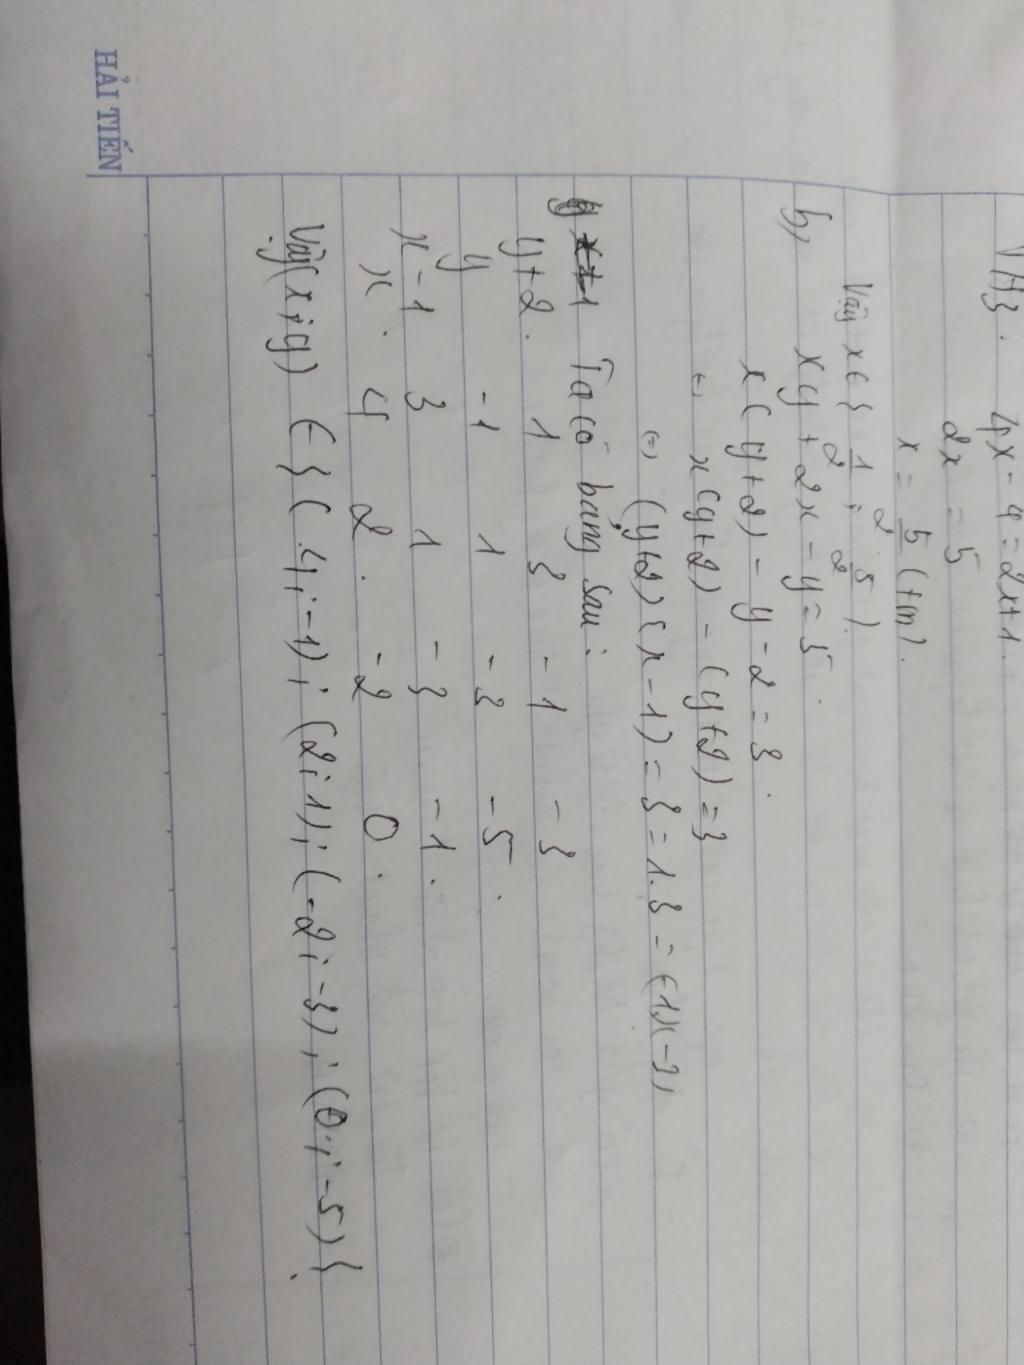 TH3: 4x - 4 = 2x + 1.
2x = 5
x = 5/2 (tm).
Vậy x ∈ { 1/2 ; 5/2 }.
b, xy + 2x - y = 5.
x(y+2) - y - 2 = 3.
x(y+2) - (y+2) = 3
(=) (y+2)(x-1) = 3 = 1.3 = (-1)(-3)
Ta có bảng sau:
y+2. 1 3 -1 -3
y -1 1 -3 -5.
x-1 3 1 -3 -1.
x. 4 2. -2 0.
Vậy (x;y) ∈ {(4;-1); (2;1); (-2;-3); (0;-5)}.
HẢI TIẾN